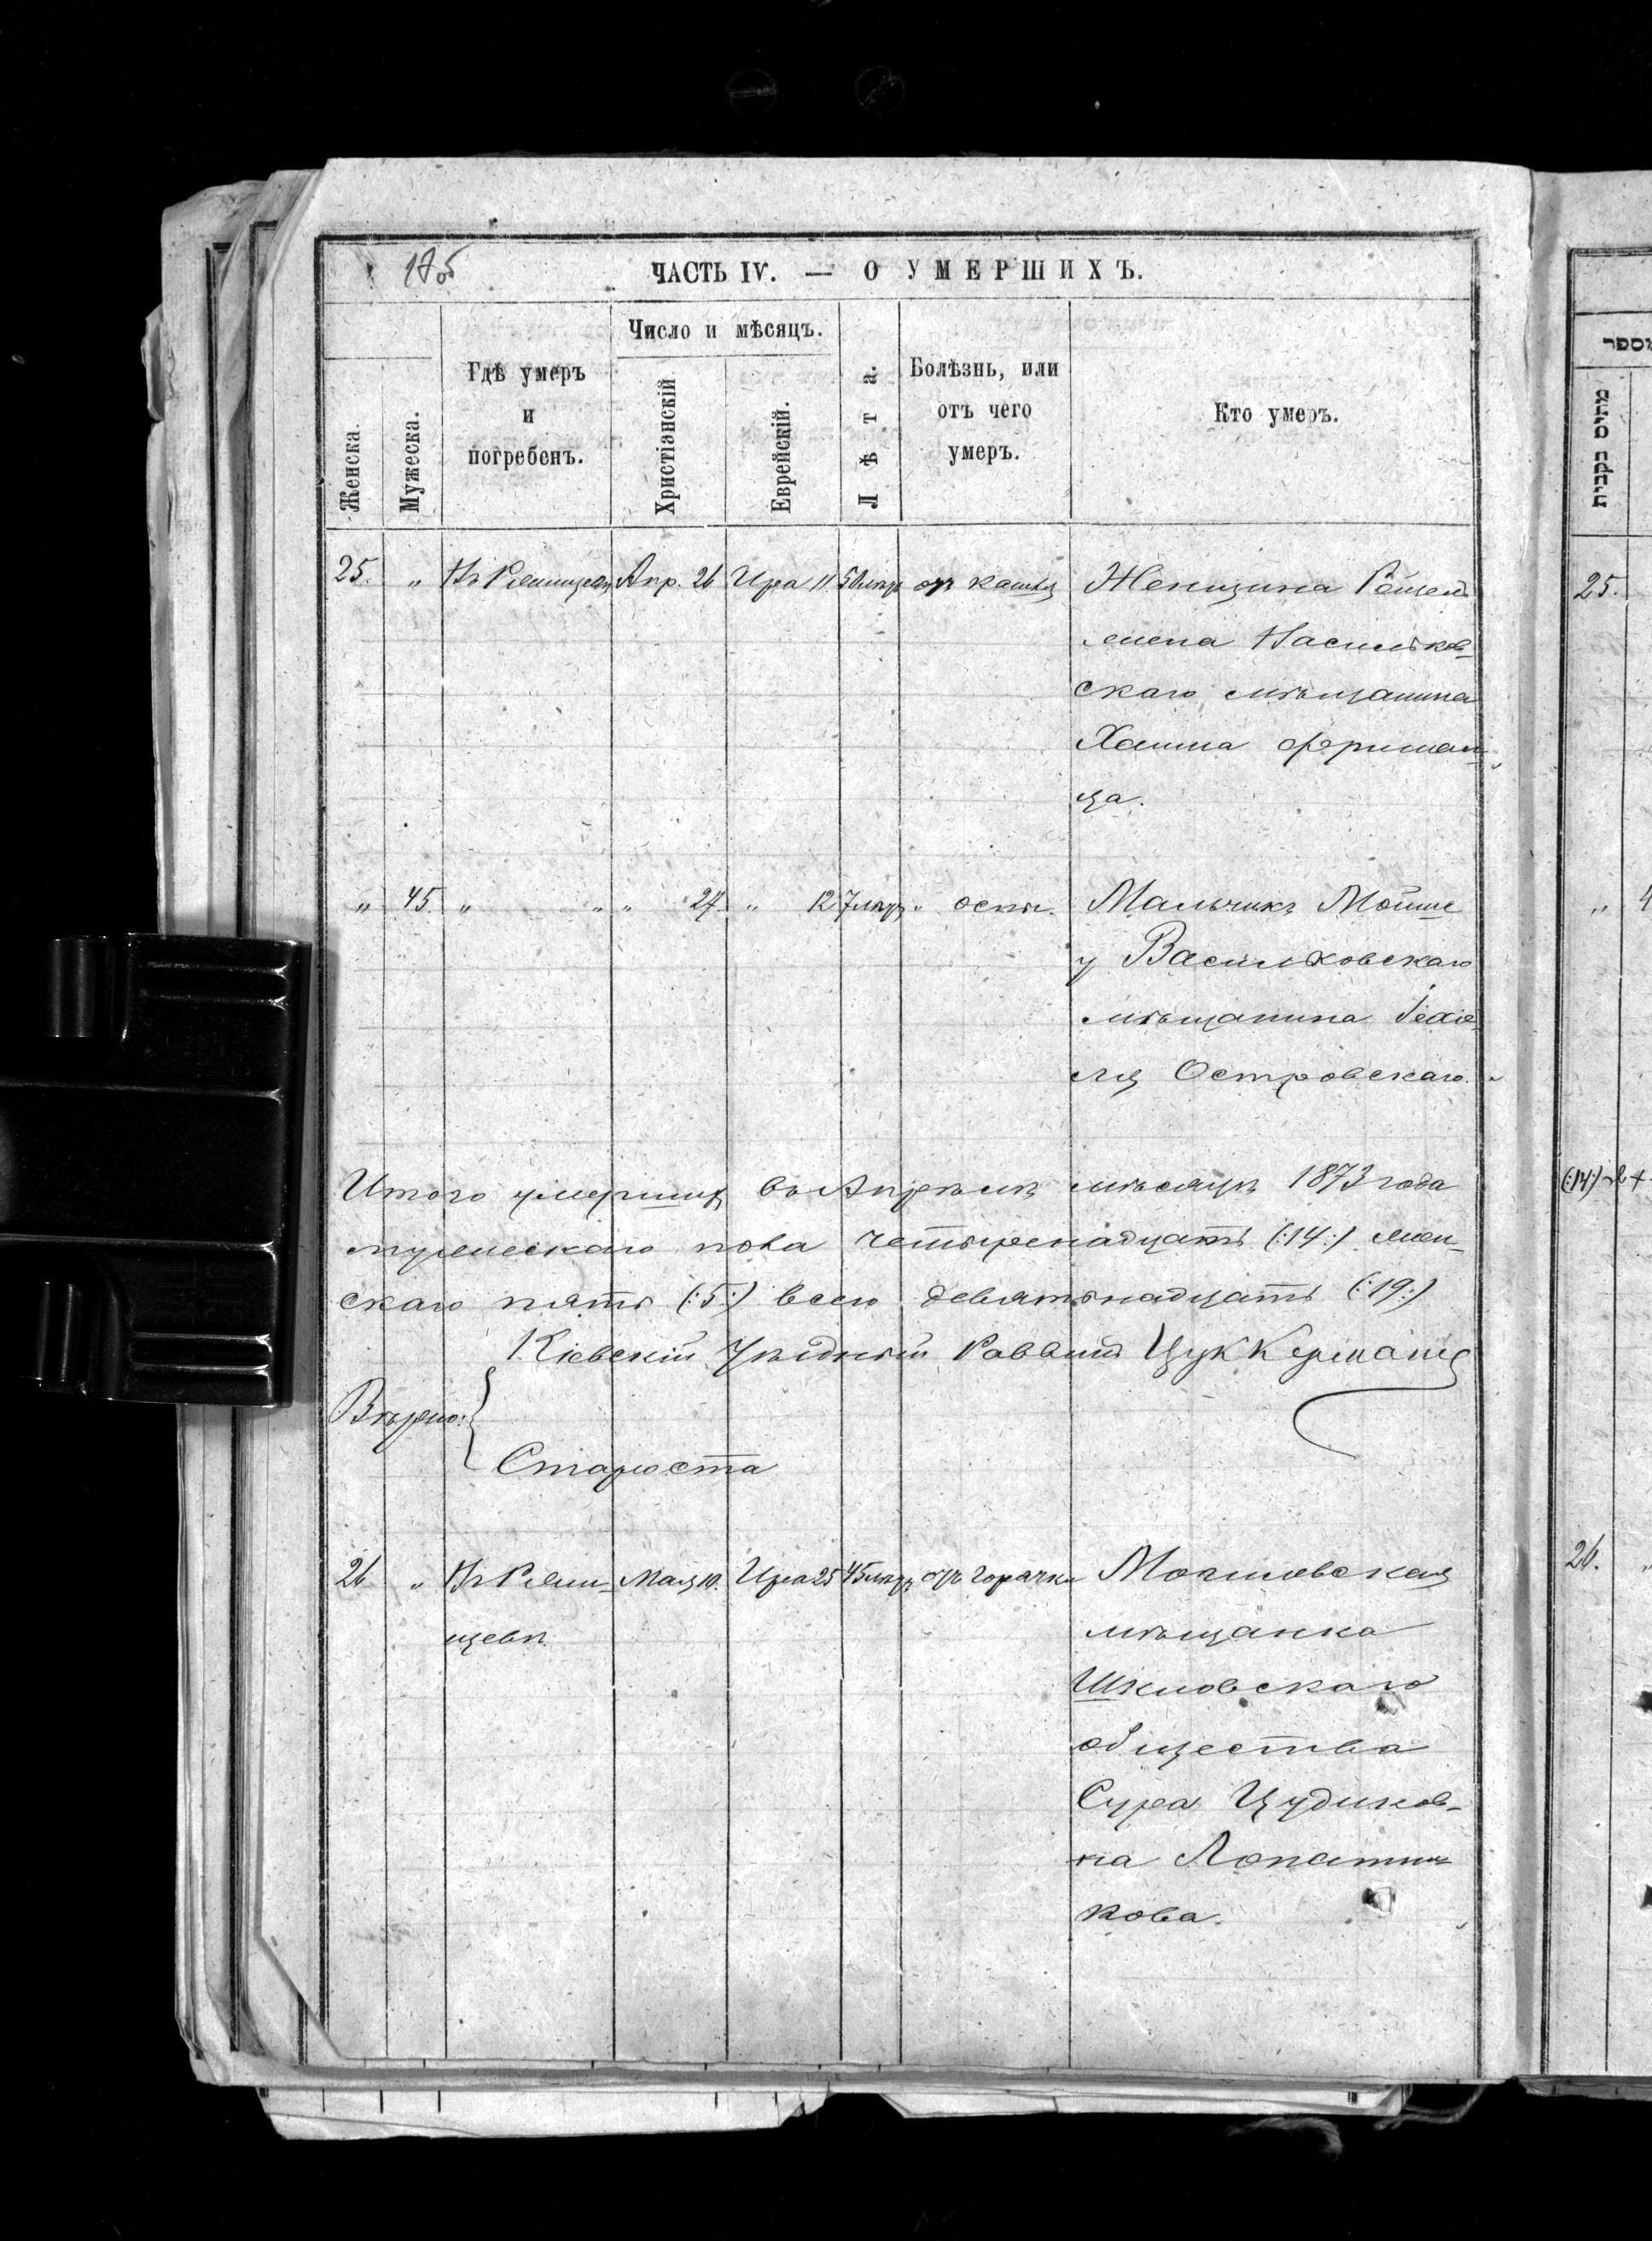 175
ЧАСТЬ IV. — О УМЕРШИХЪ.
Женска.
Мужеска.
Гдѣ умеръ
и
погребенъ.
Число и мѣсяцъ.
Христіанскій
Еврейскій.
Лѣта.
Болѣзнь, или
отъ чего
умеръ.
Кто умеръ.
25. „ Апр. 26 Ира 11 50 лѣтъ отъ кашля Женщина
жена Васильков-
скаго мѣщанина
Хаима Фришман-
ца.
„ 45. „ „ „ 27 „ 12 7 лѣтъ „ оспы. Мальчикъ Мойше
у Васильковскаго
мѣщанина Іехіе-
ля Островскаго.
Итого умершихъ въ Апрѣлѣ мѣсяцѣ 1873 года
мужескаго пола четыренадцать (:14:) жен-
скаго пять (:5:) всего девятьнадцать (:19:)
Кіевскій Уѣздный Раввинъ Цуккерманъ
Вѣрно:
Староста
26 „ Мая 10. Ира 25 45 лѣтъ отъ горячки Могилевская
щевѣ.
мѣщанка
Шкловскаго
общества
Сура Цудиков-
на Лопатни-
кова.
מספר
מתים נקבות
25.
(:14:)
26.